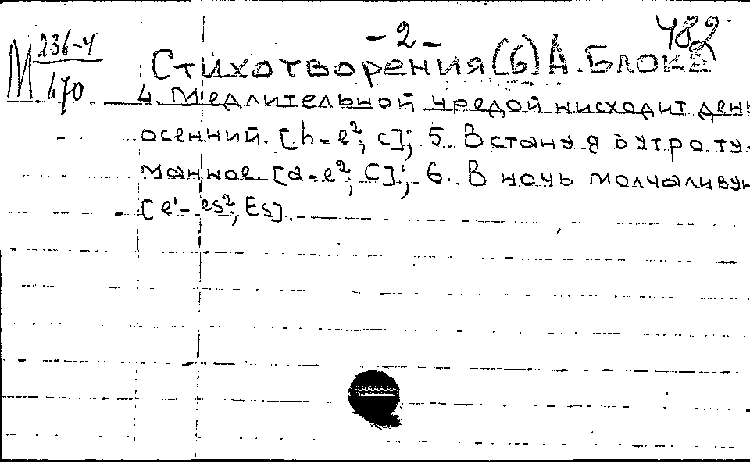 - 2 -
482
М 236-4
470
Стихотворения (6) А. Блока
4. Медлительной чредой нисходит день
осенний. [h-e², c]; 5. Встану я в утро ту-
манное [d-e², C]; 6. В ночь молчаливую
[e¹-es², Es].